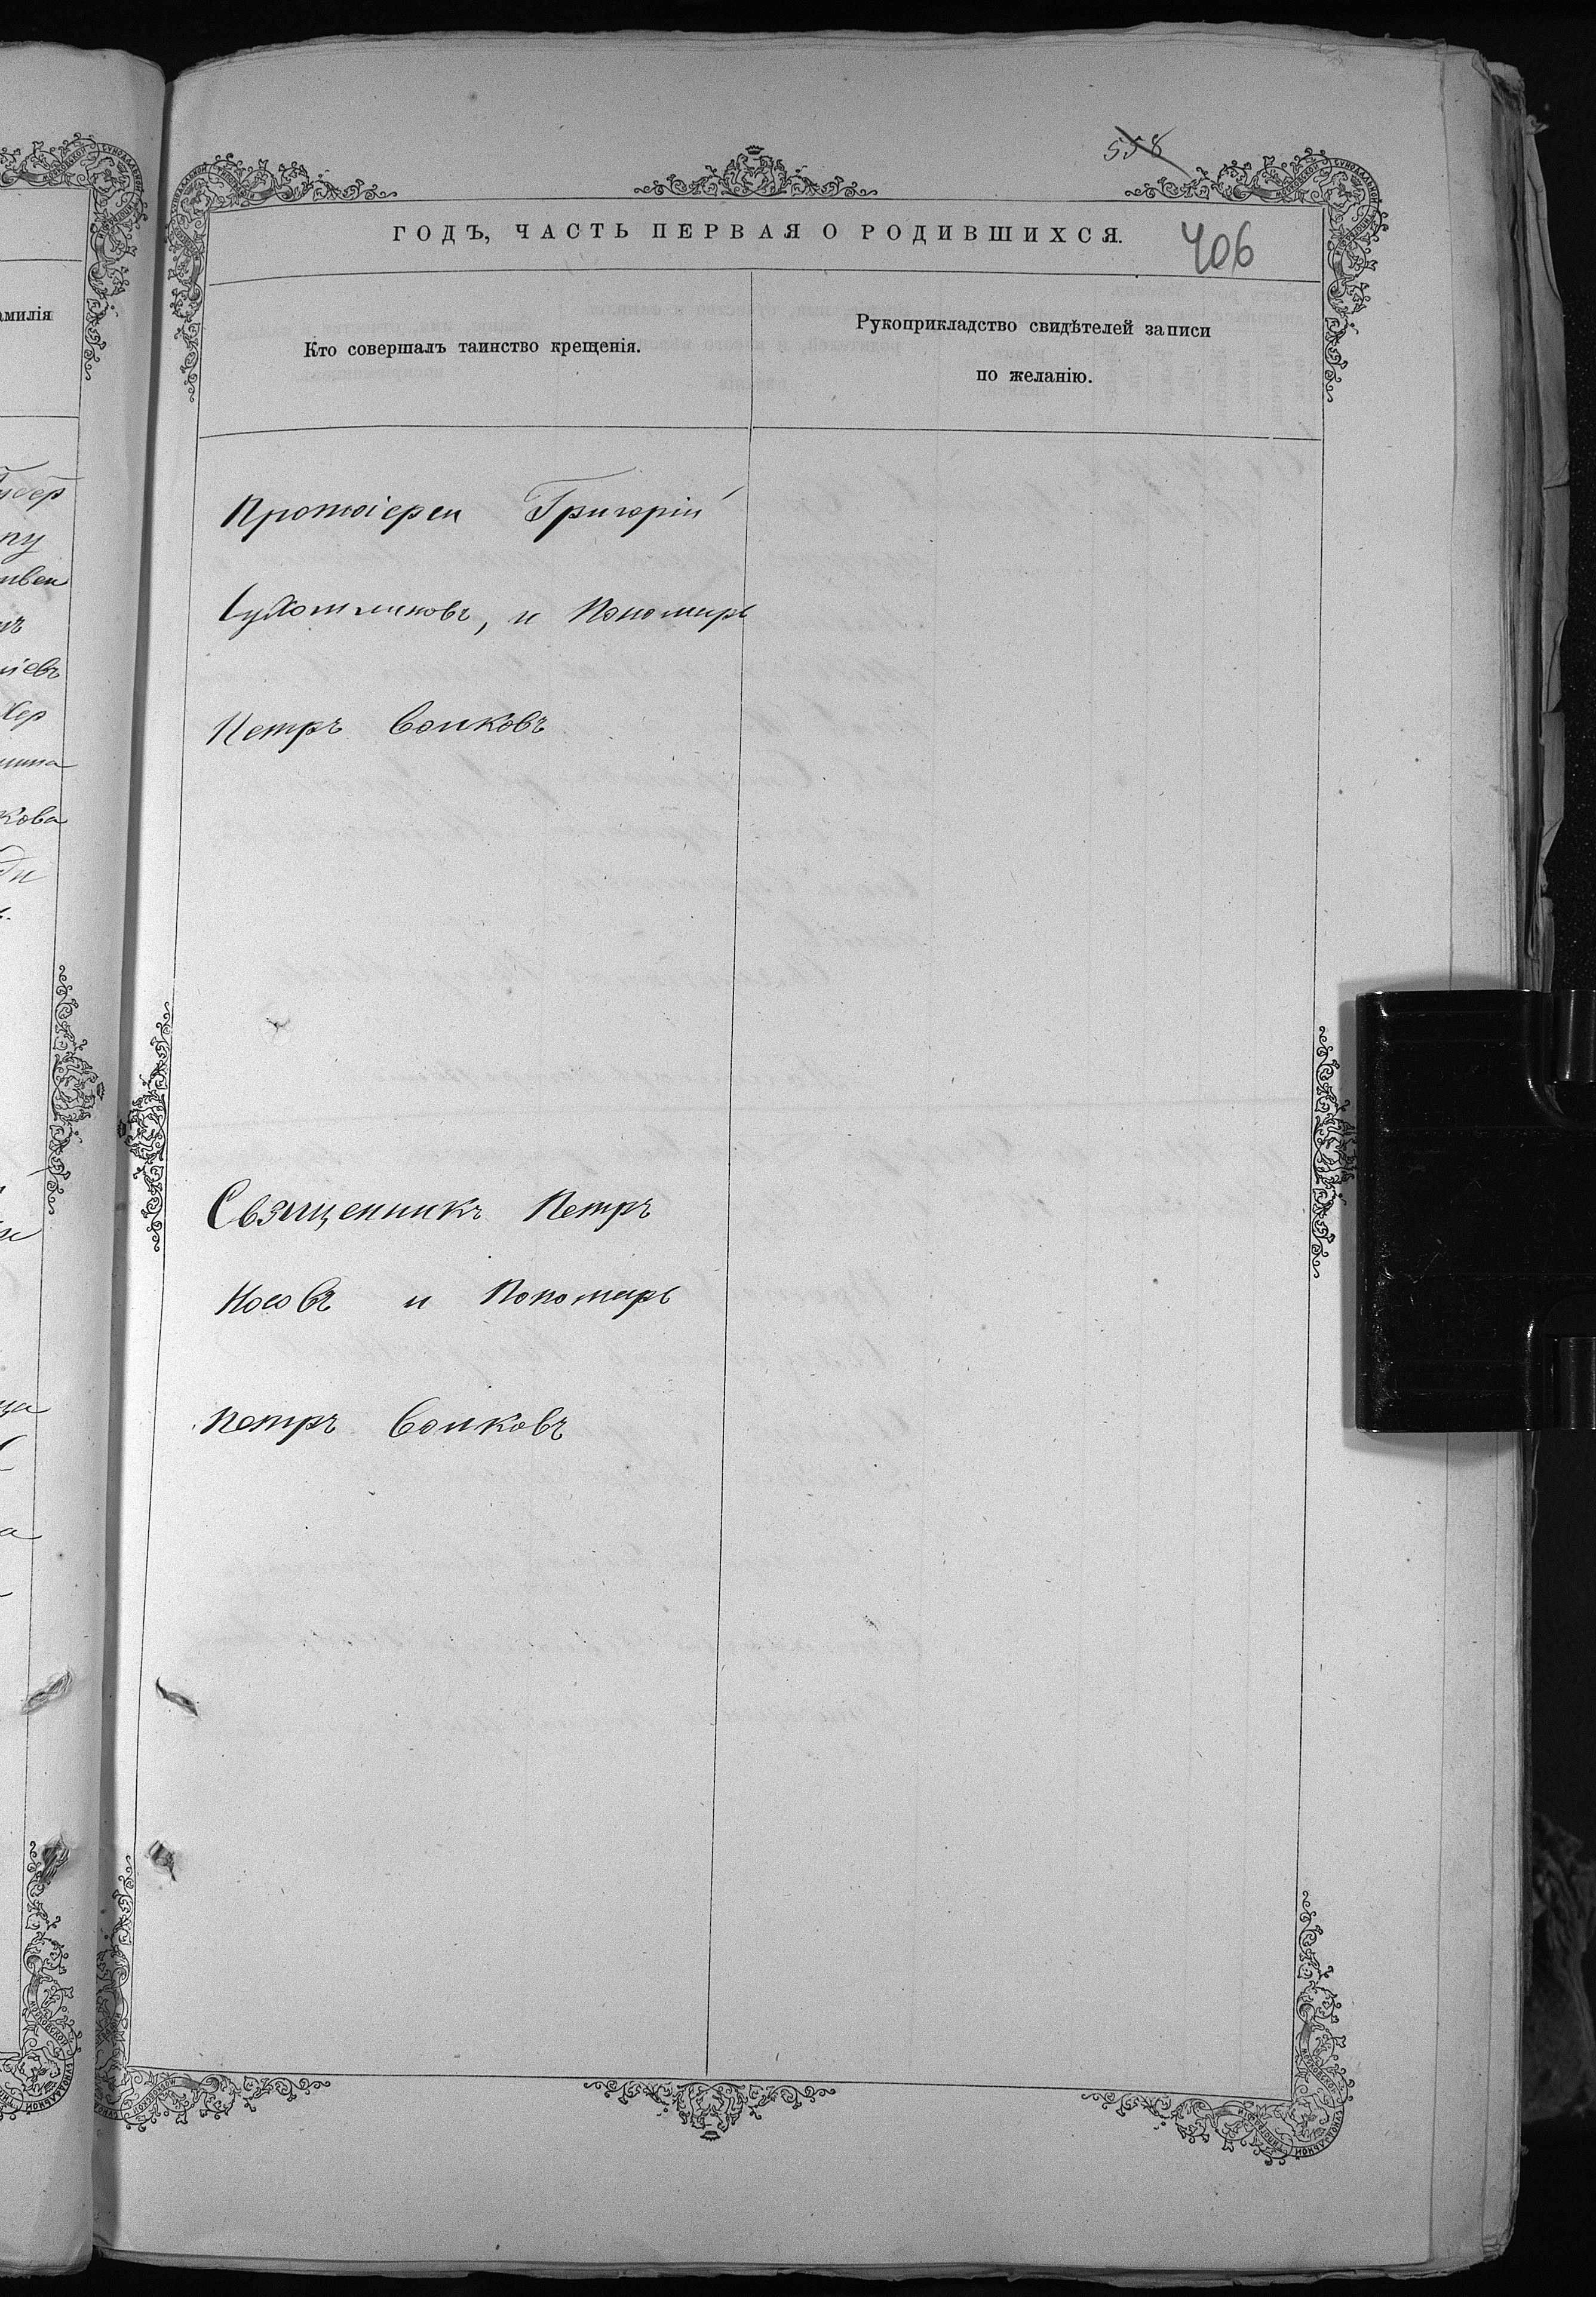 558
ГОДЪ, ЧАСТЬ ПЕРВАЯ О РОДИВШИХСЯ.
406
амилія
Кто совершалъ таинство крещенія.
Рукоприкладство свидѣтелей записи
по желанію.
Протоіереи Григорій
и Пономарь
Петръ Волковъ
кова
Священникъ Петръ
Носовъ и Пономарь
Петръ Волковъ